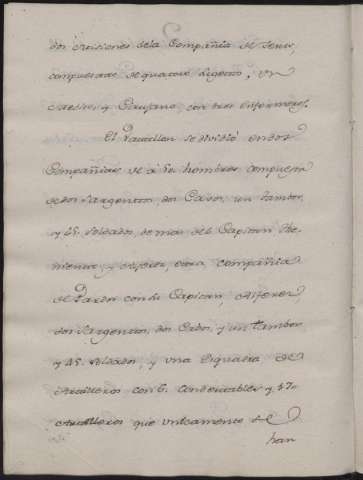 dos divisiones dela Compañia de
compuestas de quatro ligeros, un
y Cirujano, con tres enfermeros.
El Batallon sedividió endos
Compañias de á 50 hombres compuesta
de dos Sargentos, dos Cavos, un tambor
y 45. Soldados, demas del Capitan The-
niente, y Alferez, otra compañia
de Pardos con su Capitan, Alferez
dos Sargentos, dos Cabos, y un tambor
y 45. Soldados, y una Esquadra de
Artilleros con 6. Condestables y 17.
Artilleros que unicamente se
han